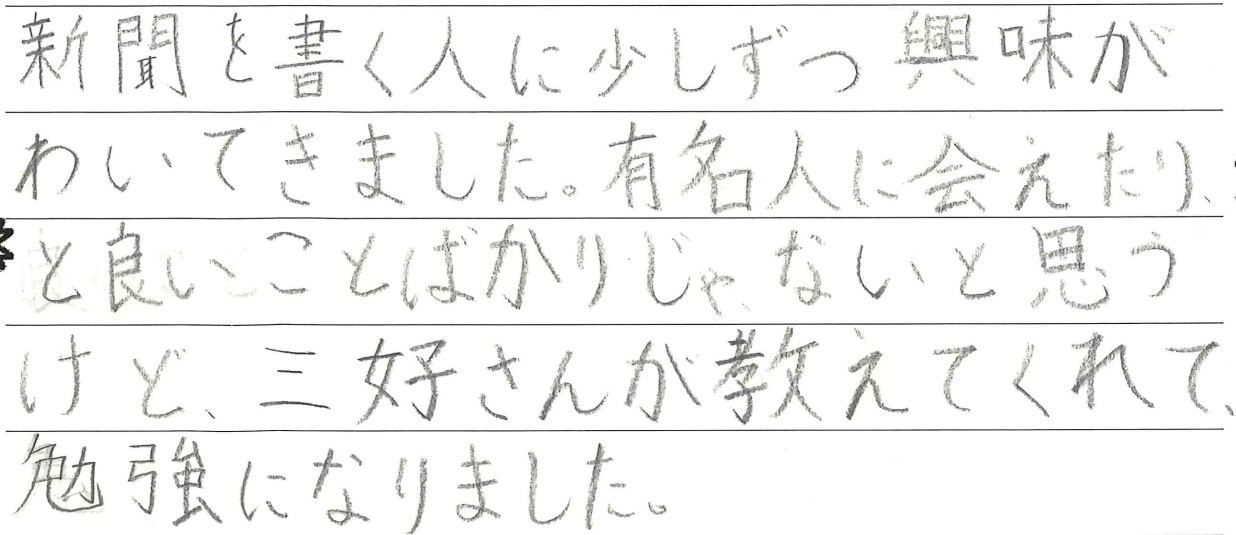 新聞を書く人に少しずつ興味が
わいてきました。有名人に会えたり、
と良いことばかりじゃないと思う
けど、三好さんが教えてくれて、
勉強になりました。